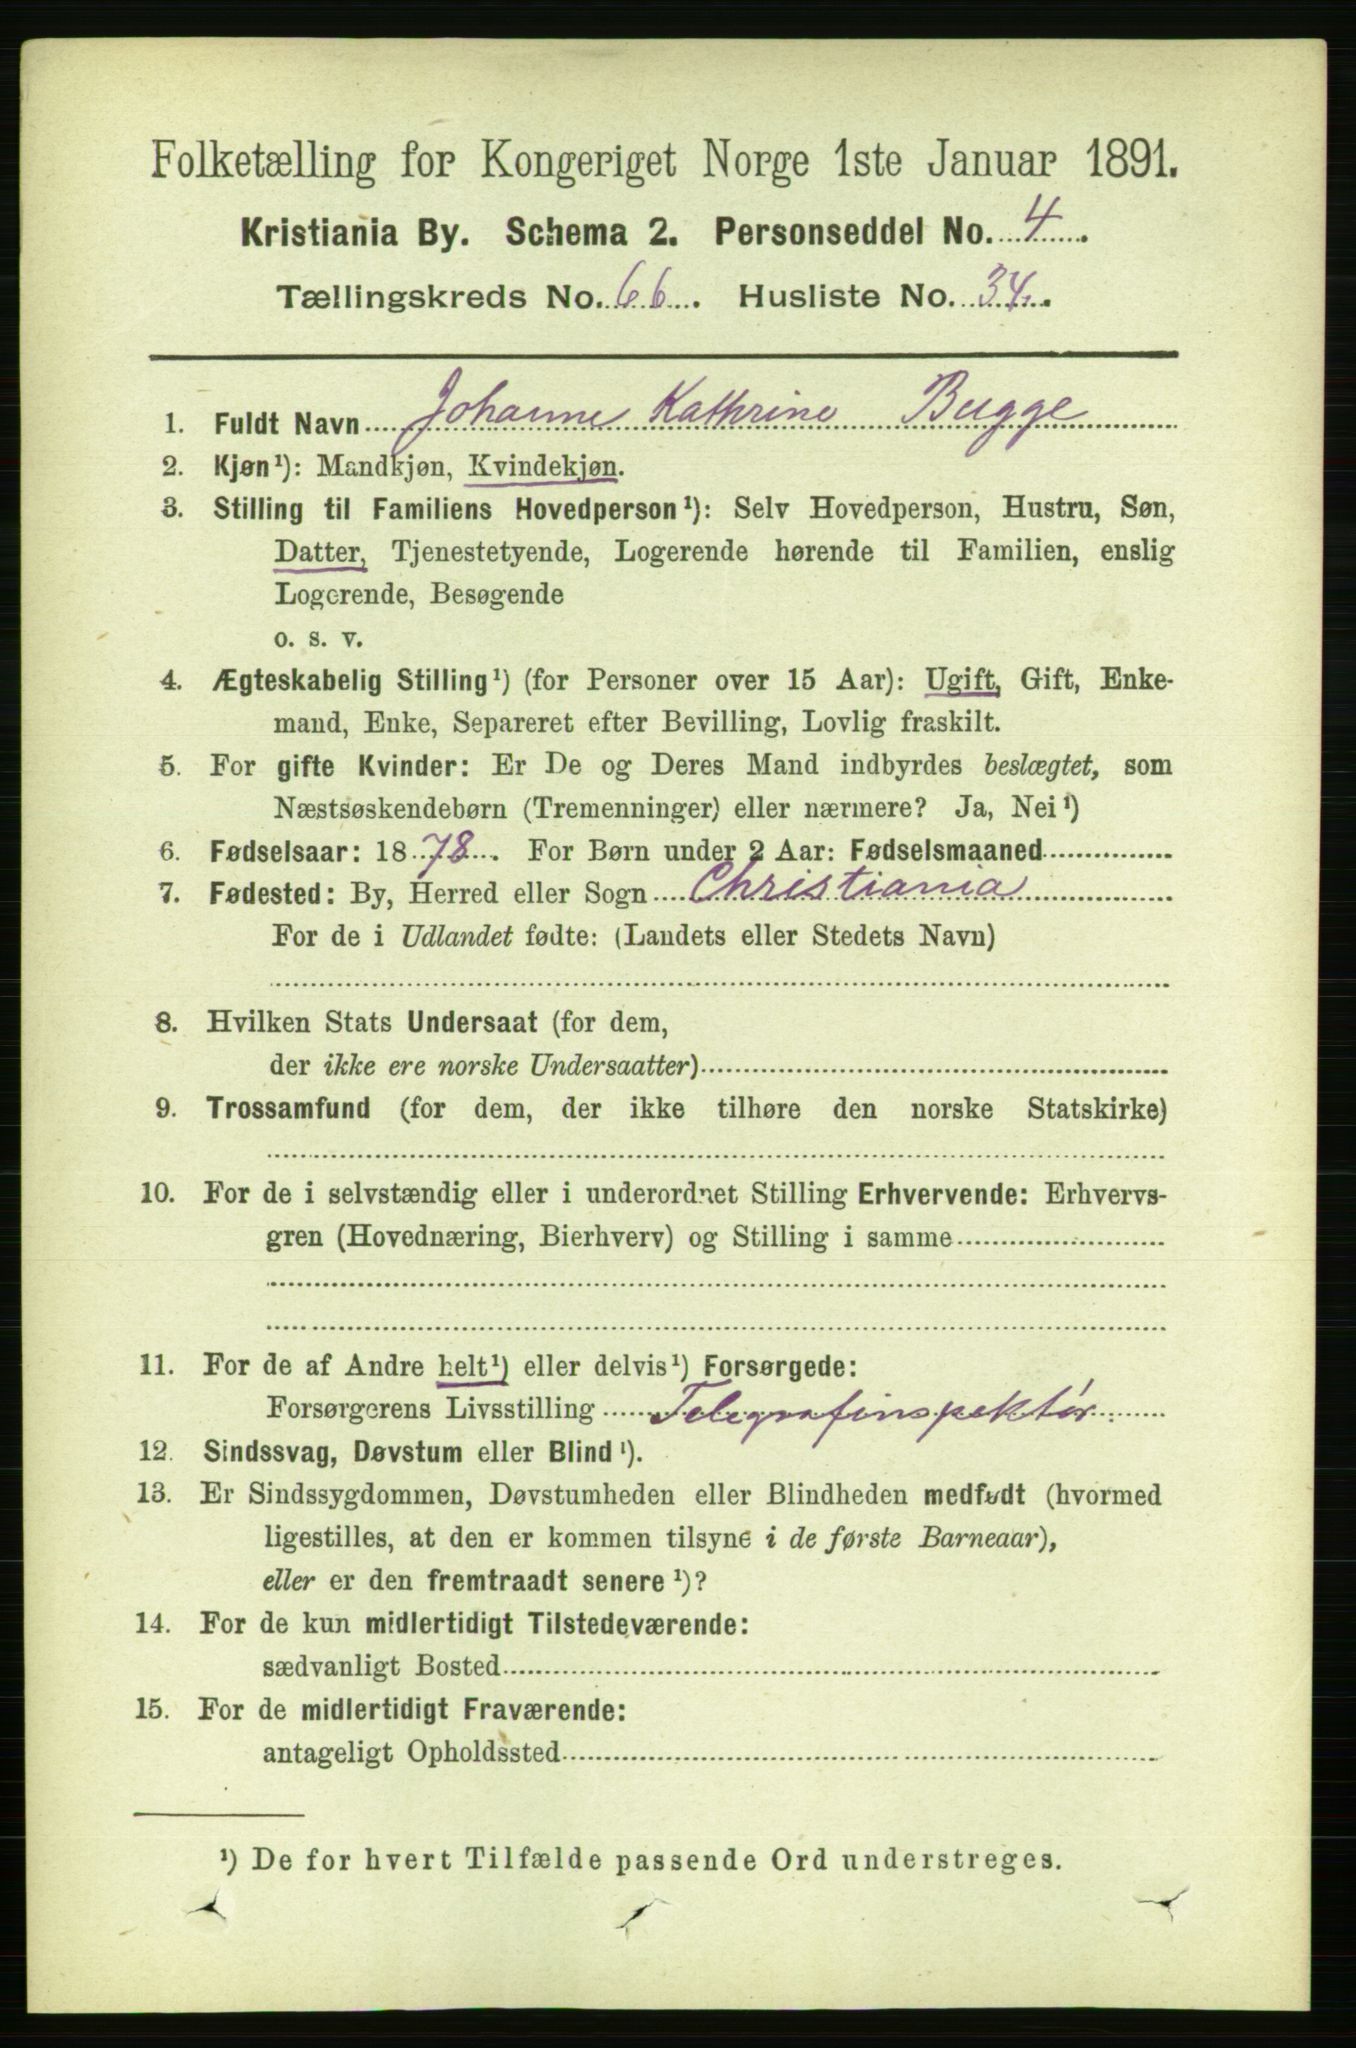 Folketælling for Kongeriget Norge 1ste Januar 1891.
Kristiania By. Schema 2. Personseddel No. 4.
Tællingskreds No. 66. Husliste No. 34.
1. Fuldt Navn Johanne Kathrine Bugge
2. Kjøn¹): Mandkjøn, Kvindekjøn.
3. Stilling til Familiens Hovedperson¹): Selv Hovedperson, Hustru, Søn,
Datter, Tjenestetyende, Logerende hørende til Familien, enslig
Logerende, Besøgende
o. s. v.
4. Ægteskabelig Stilling¹) (for Personer over 15 Aar): Ugift, Gift, Enke-
mand, Enke, Separeret efter Bevilling, Lovlig fraskilt.
5. For gifte Kvinder: Er De og Deres Mand indbyrdes beslægtet, som
Næstsøskendebørn (Tremenninger) eller nærmere? Ja, Nei¹)
6. Fødselsaar: 1878. For Børn under 2 Aar: Fødselsmaaned
7. Fødested: By, Herred eller Sogn Christiania
For de i Udlandet fødte: (Landets eller Stedets Navn)
8. Hvilken Stats Undersaat (for dem,
der ikke ere norske Undersaatter)
9. Trossamfund (for dem, der ikke tilhøre den norske Statskirke)
10. For de i selvstændig eller i underordnet Stilling Erhvervende: Erhvervs-
gren (Hovednæring, Bierhverv) og Stilling i samme
11. For de af Andre helt¹) eller delvis¹) Forsørgede:
Forsørgerens Livsstilling Telegrafinspektør
12. Sindssvag, Døvstum eller Blind¹).
13. Er Sindssygdommen, Døvstumheden eller Blindheden medfødt (hvormed
ligestilles, at den er kommen tilsyne i de første Barneaar),
eller er den fremtraadt senere¹)?
14. For de kun midlertidigt Tilstedeværende:
sædvanligt Bosted
15. For de midlertidigt Fraværende:
antageligt Opholdssted
¹) De for hvert Tilfælde passende Ord understreges.